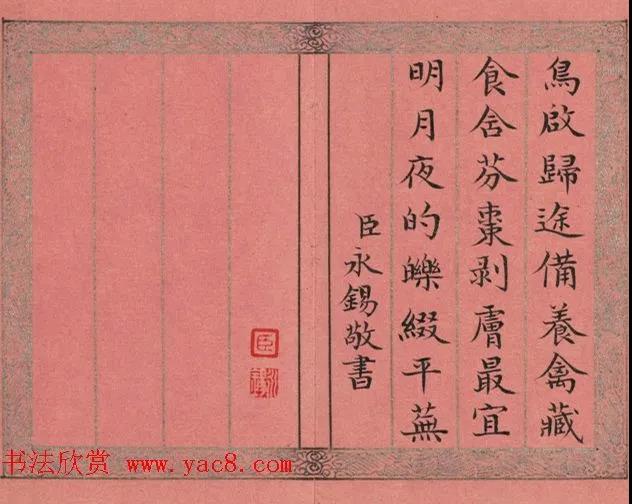 鳥啟歸途備養禽藏
食含芬棗剥膚最宜
明月夜的皪綴平蕪
臣永錫敬書
臣
书法欣赏 www.yac8.com